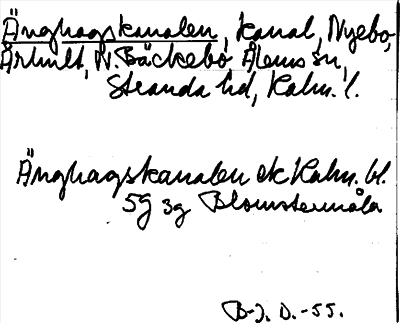 Änghagskanalen, kanal, Nyebo,
Århult, N. Bäckebo Ålems sn,
Stranda hd, Kalm. l.
Änghagskanalen ek Kalm. bl.
5g 3g Blomstermåla
B-J. D. -55.